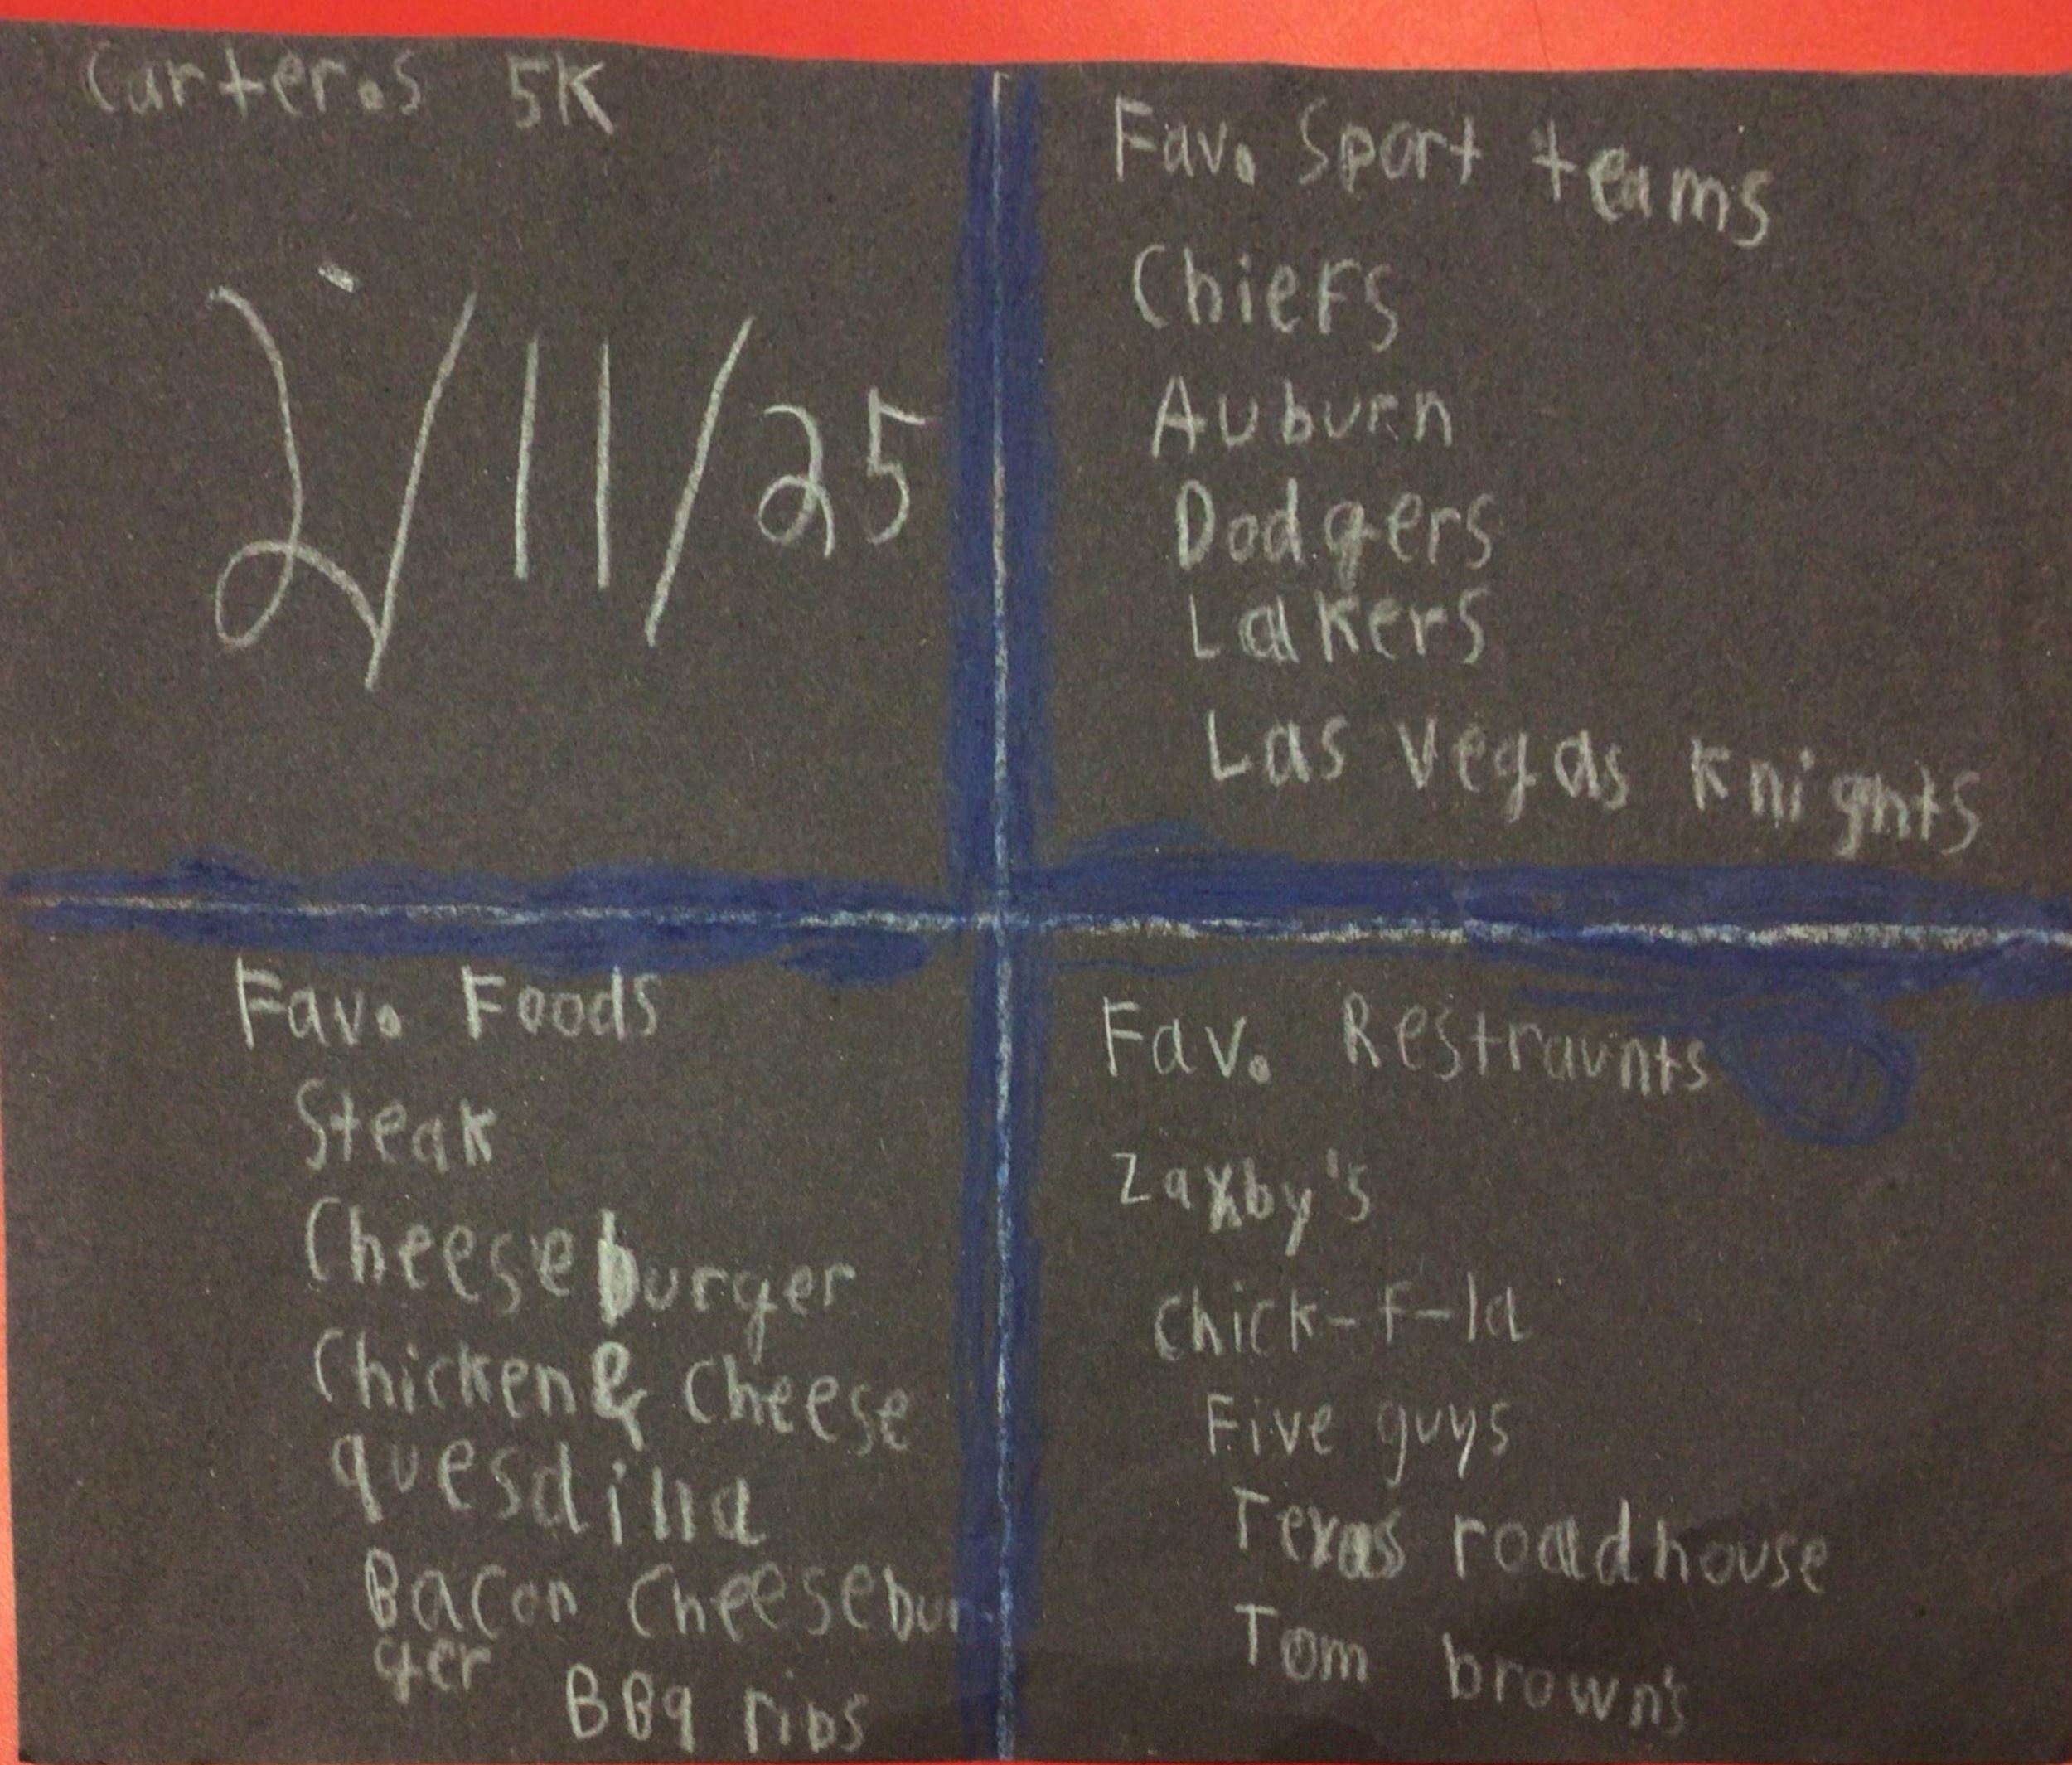 Carter.s 5K
2/11/25
Fav. Sport teams
Chiefs
Auburn
Dodgers
Lakers
Las Vegas Knights
Fav. Foods
Steak
Cheeseburger
Chicken & Cheese
quesdilla
Bacon Cheesebur
ger
BBq ribs
Fav. Restraunts
Zaxby's
Chick-f-la
Five guys
Texas roadhouse
Tom brown's